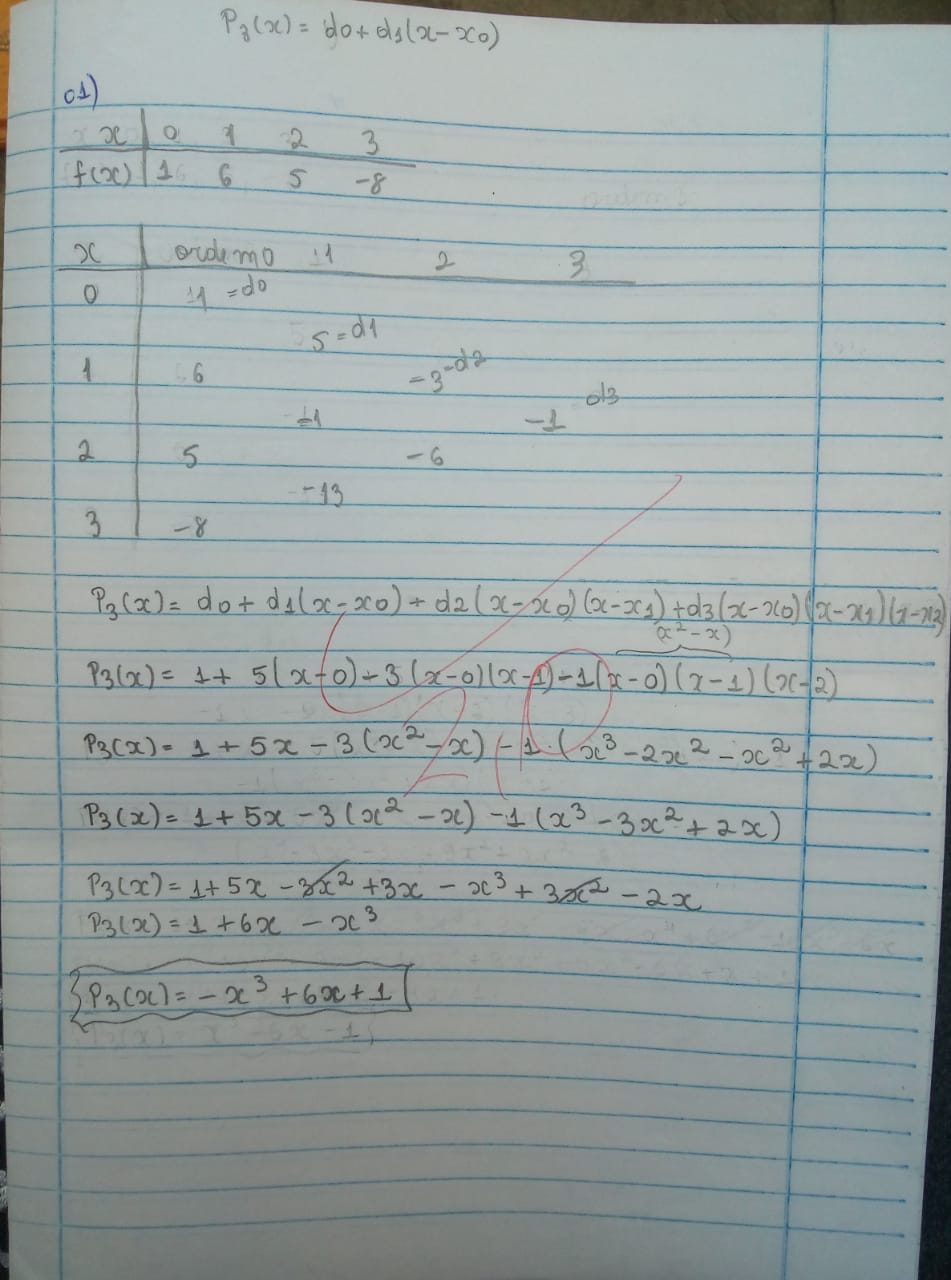 P₃(x) = do + d1(x - x0)
01)
x | 0 1 2 3
f(x) | 1 6 5 -8
x | ordem 0 1 2 3
0 | 1 = do
5 = d1
1 | 6
-3 = d2
-1 d3
-1
2 | 5
-6
-13
3 | -8
P₃(x) = do + d1(x - x0) + d2(x - x0)(x - x1) + d3(x - x0)(x - x1)(x - x2)
(x² - x)
P₃(x) = 1 + 5(x - 0) - 3(x - 0)(x - 1) - 1(x - 0)(x - 1)(x - 2)
P₃(x) = 1 + 5x - 3(x² - x) - 1·(x³ - 2x² - x² + 2x)
P₃(x) = 1 + 5x - 3(x² - x) - 1(x³ - 3x² + 2x)
P₃(x) = 1 + 5x - 3x² + 3x - x³ + 3x² - 2x
P₃(x) = 1 + 6x - x³
P₃(x) = -x³ + 6x + 1